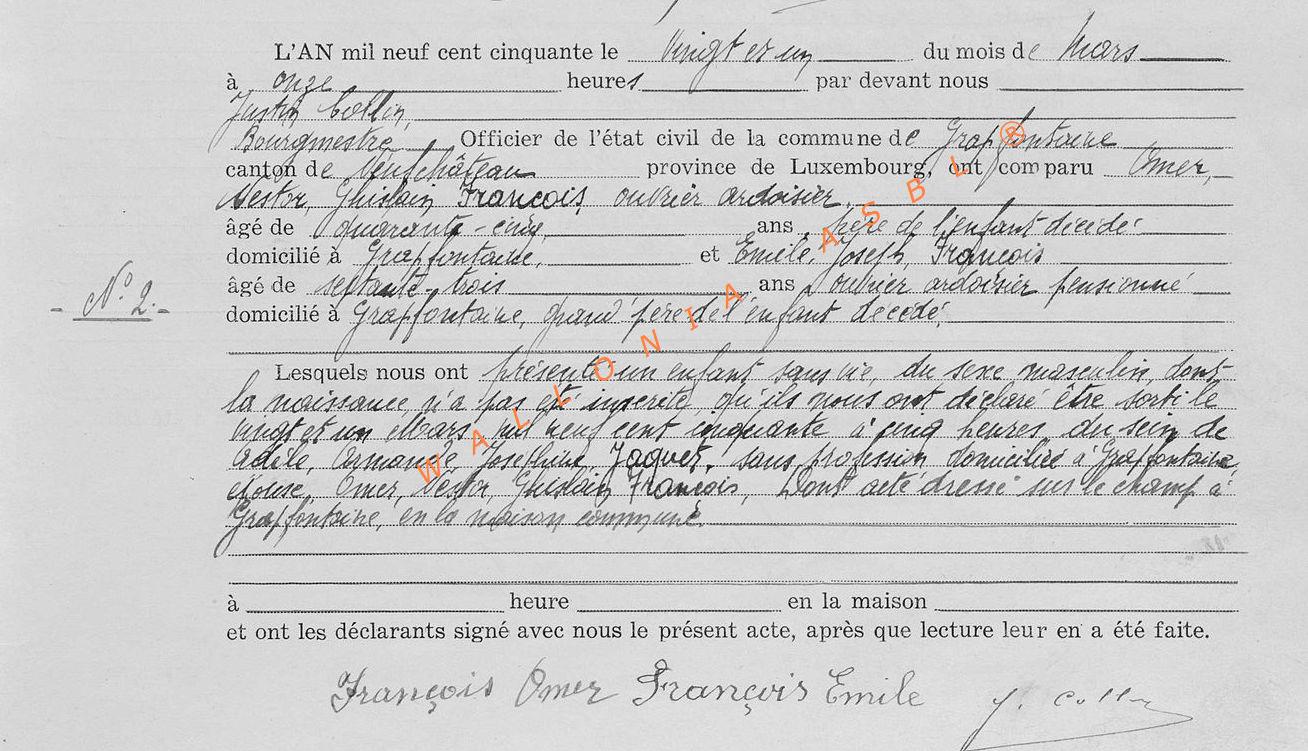 L'AN mil neuf cent cinquante le vingt et un du mois de Mars
à onze heures par devant nous
Justin Collin,
Bourgmestre Officier de l'état civil de la commune de Grapfontaine
canton de Neufchâteau province de Luxembourg, ont comparu Omer,
Nestor, Ghislain François, ouvrier ardoisier,
âgé de quarante-cinq ans, père de l'enfant décédé
domicilié à Grapfontaine, et Emile, Joseph, François
âgé de septante-trois ans, ouvrier ardoisier pensionné
- N° 2. -
domicilié à Grapfontaine, grand'père de l'enfant décédé,
Lesquels nous ont présenté un enfant sans vie, du sexe masculin, dont
la naissance n'a pas été inscrite, qu'ils nous ont déclaré être sorti le
vingt et un Mars mil neuf cent cinquante à cinq heures, du sein de
Adèle, Armande, Joséphine, Jaquet, sans profession domiciliée à Grapfontaine,
épouse, Omer, Nestor, Ghislain François, Dont acte dressé sur le champ à
Grapfontaine, en la maison communé.
à heure en la maison
et ont les déclarants signé avec nous le présent acte, après que lecture leur en a été faite.
François Omer François Emile J. Collin
WALLONIA ASBL ®